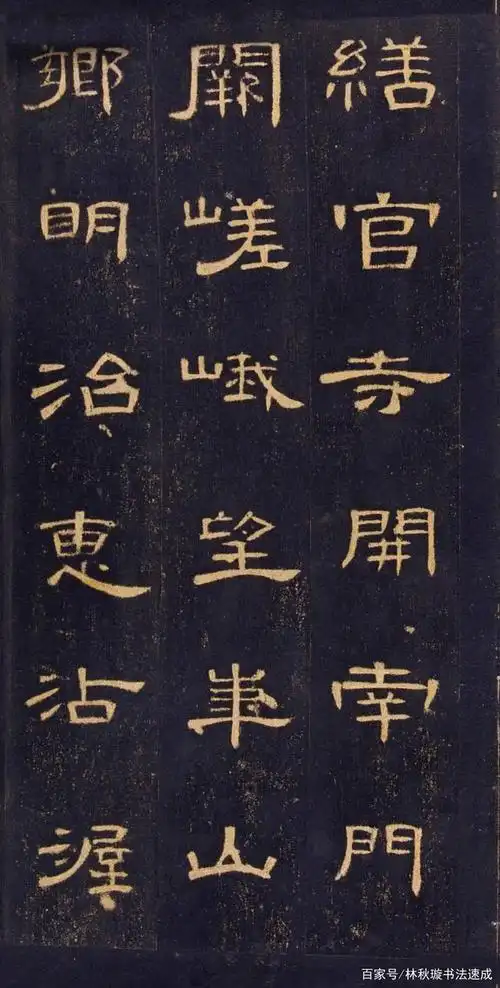 繕官寺開南門
闕嵯峨望華山
鄉明治惠沾渥
百家号/林秋璇书法速成